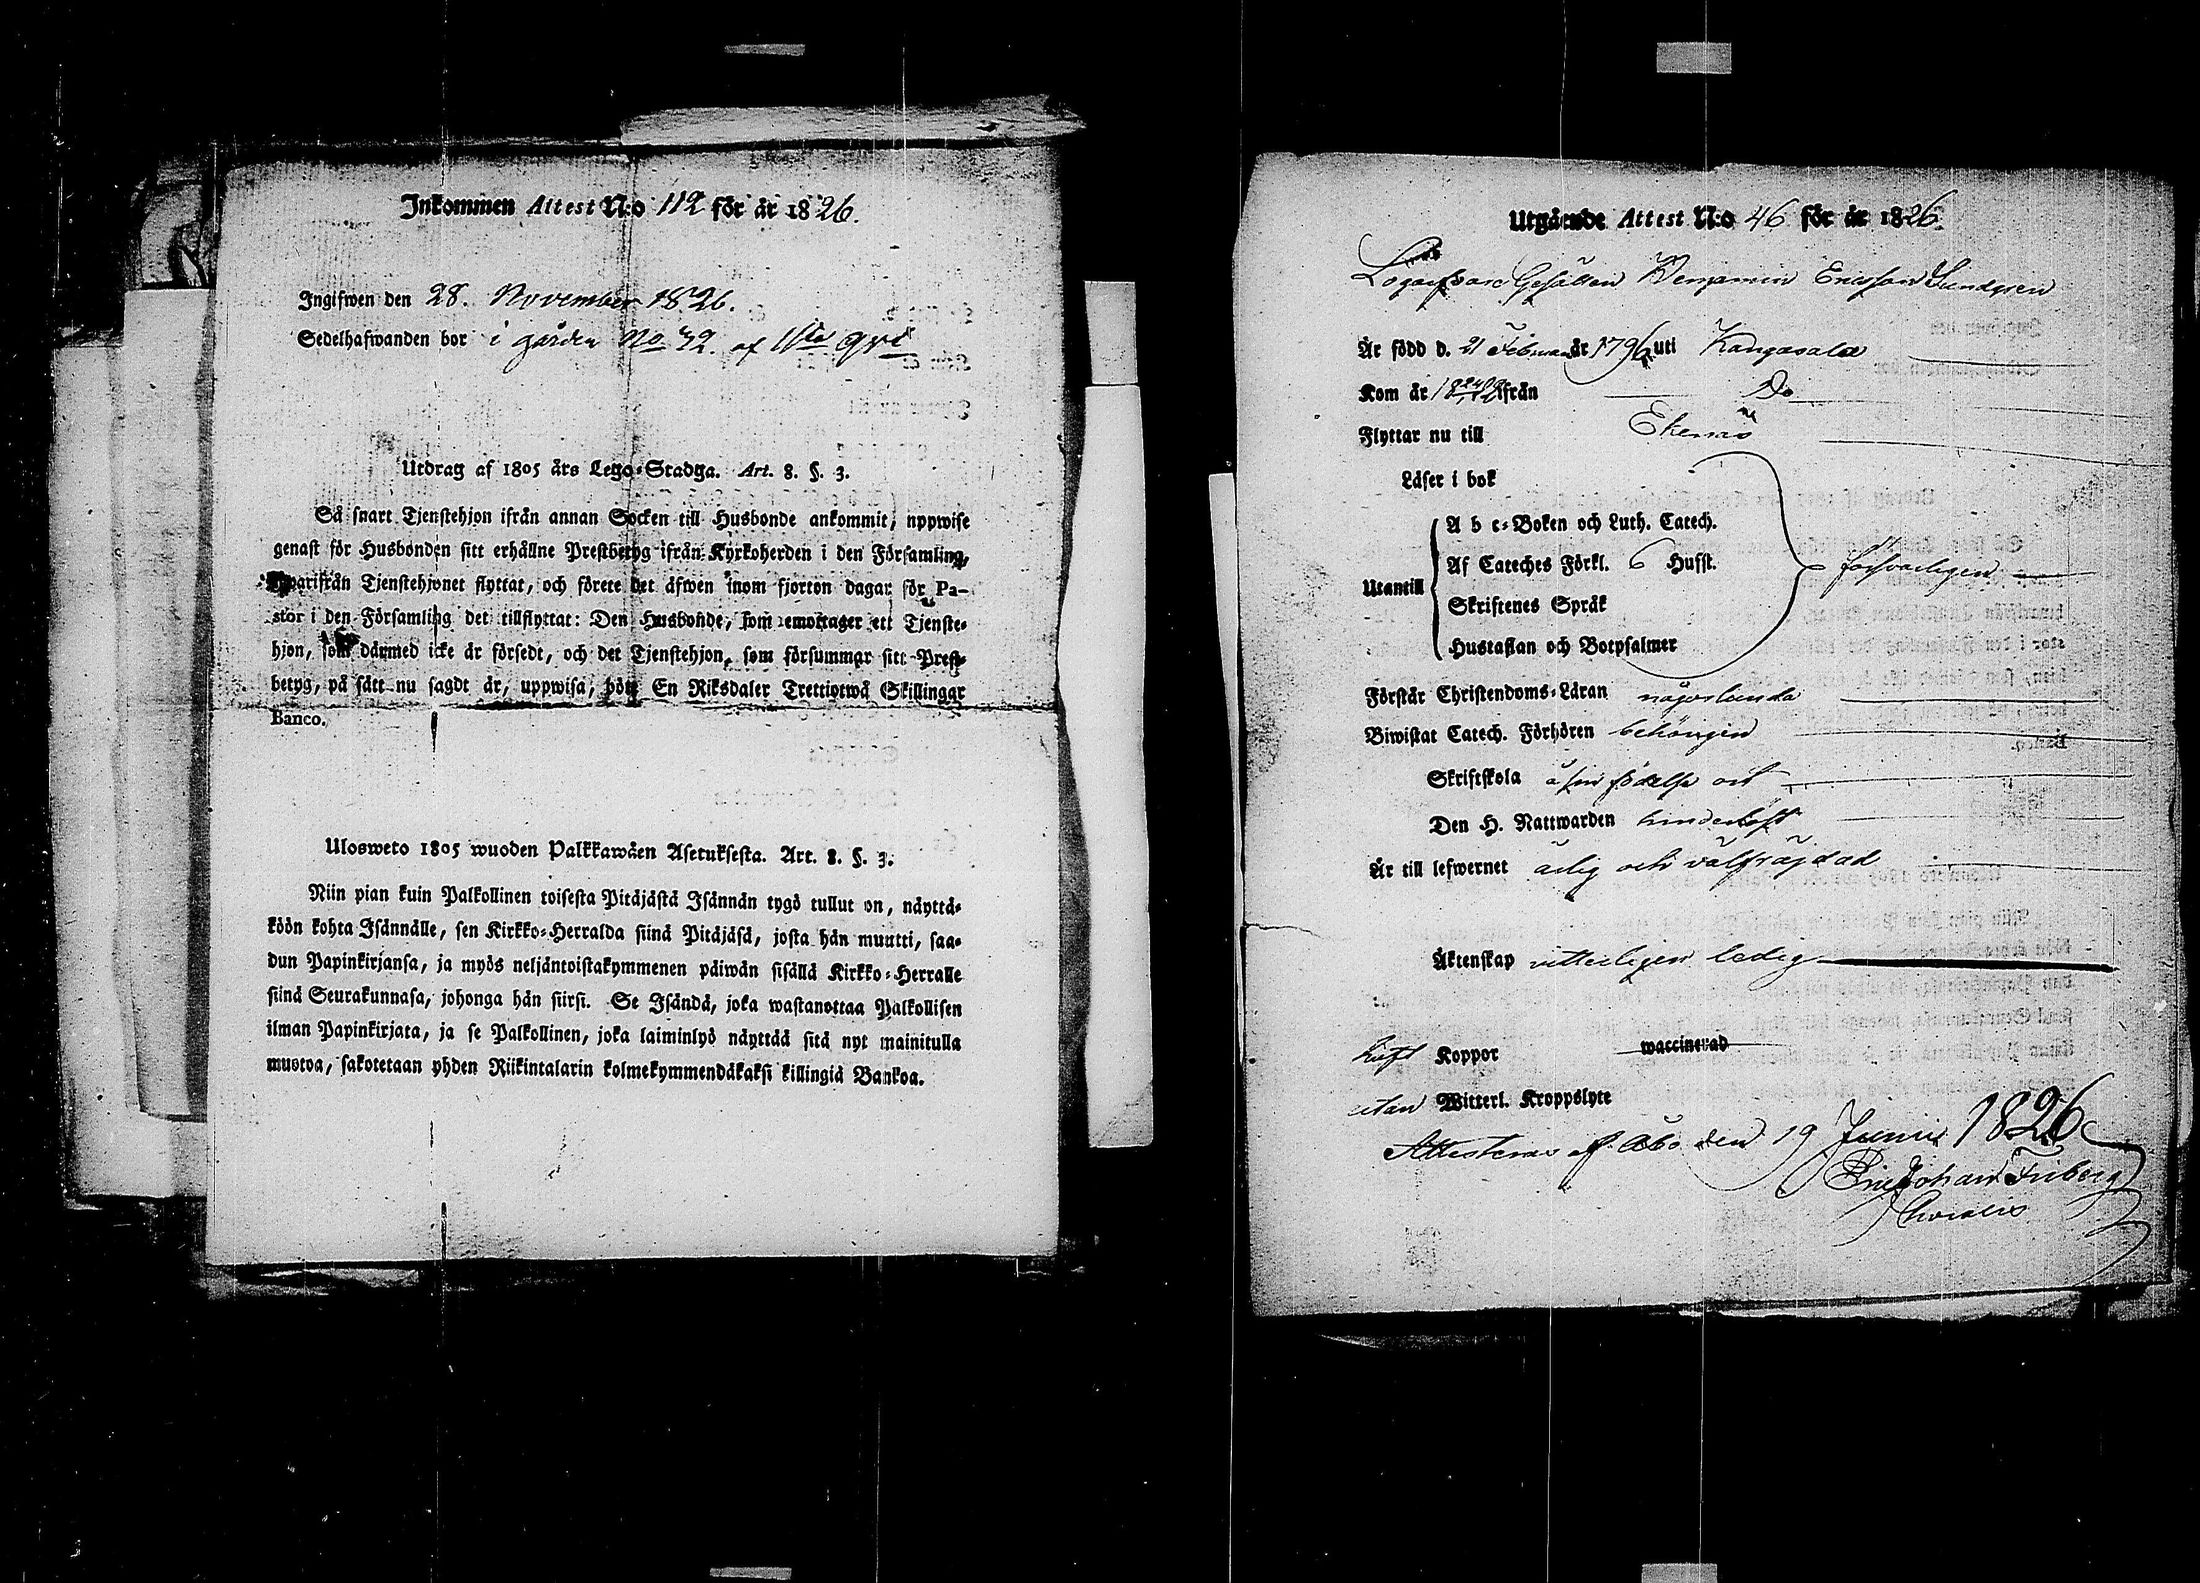 Inkommen Attest N:o 112 för år 1826.
Ingifwen den 28. November 1826.
Sedelhafwanden bor i gården No 42. af IIdra qrt
Utdrag af 1805 års Lego-Stadga. Art. 8. §. 3.
Så snart Tjenstehjon ifrån annan Socken till Husbonde ankommit, uppwise
genast för Husbonden sitt erhållne Prestbetyg ifrån Kyrkoherden i den Församling,
hwarifrån Tjenstehjonet flyttat, och förete det äfwen inom fjorton dagar för Pa-
stor i den Församling det tillflyttat: Den Husbonde, som emottager ett Tjenste-
hjon, som därmed icke är försedt, och det Tjenstehjon, som försummar sitt Prest-
betyg, på sätt nu sagdt är, uppwisa, böte En Riksdaler Trettiotwå Skillingar
Banco.
Ulosweto 1805 wuoden Palkkawäen Asetuksesta. Art. 8. §. 3.
Niin pian kuin Palkollinen toisesta Pitäjästä Isännän tygö tullut on, näyttä-
köön kohta Isännälle, sen Kirkko-Herralda siinä Pitäjäsä, josta hän muutti, saa-
dun Papinkirjansa, ja myös neljäntoistakymmenen päiwän sisällä Kirkko-Herralle
siinä Seurakunnasa, johonga hän siirsi. Se Isändä, joka wastanottaa Palkollisen
ilman Papinkirjata, ja se Palkollinen, joka laiminlyö näyttää sitä nyt mainitulla
muotoa, sakotetaan yhden Riikintalarin kolmekymmendäkaksi killingiä Bankoa.
Utgående Attest N:o 46 för år 1826.
Gesällen Benjamin Ericsson Sundgren
Är född d. 21 Februari år 1796 uti Kangasala
Kom år ifrån Do
Flyttar nu till Ekenäs
Läser i bok
A b c-Boken och Luth. Catech.
Af Cateches Förkl. 6 Hufst. försvarligen
Utantill
Skriftenes Språk
Hustaflan och Botpsalmer
Förstår Christendoms-Läran någorlunda
Biwistat Catech. Förhören behörigen
Skriftskola å sin födelse ort
Den H. Nattwarden hinderlöst
Är till lefwernet ärlig och välfrägdad
Äktenskap vitterligen ledig
haft Koppor waccinerad
utan Witterl. Kroppslyte
Attesteras af Åbo den 19 Junii 1826
Johan Friberg